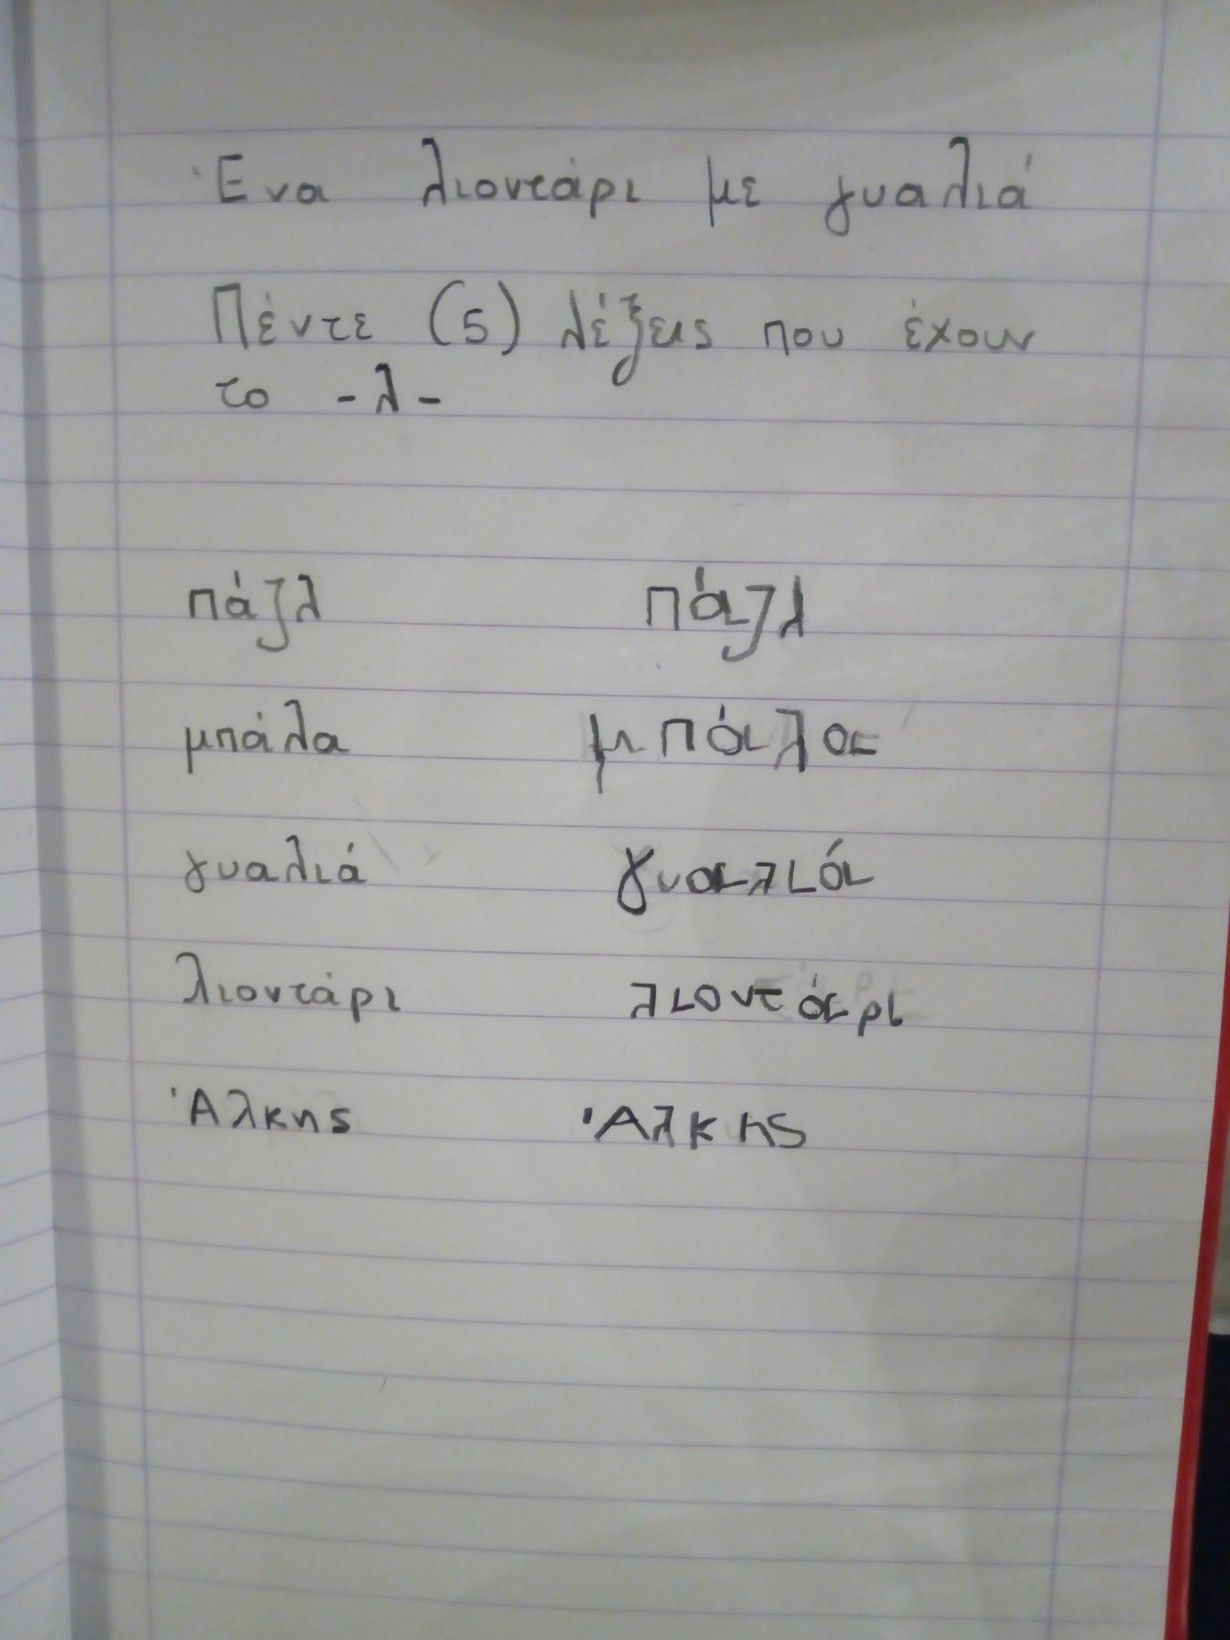 Ένα λιοντάρι με γυαλιά
Πέντε (5) λέξεις που έχουν
το -λ-
πάζλ πάζλ
μπάλα μπάλα
γυαλιά γυαλιά
λιοντάρι λιοντάρι
Άλκης Άλκης